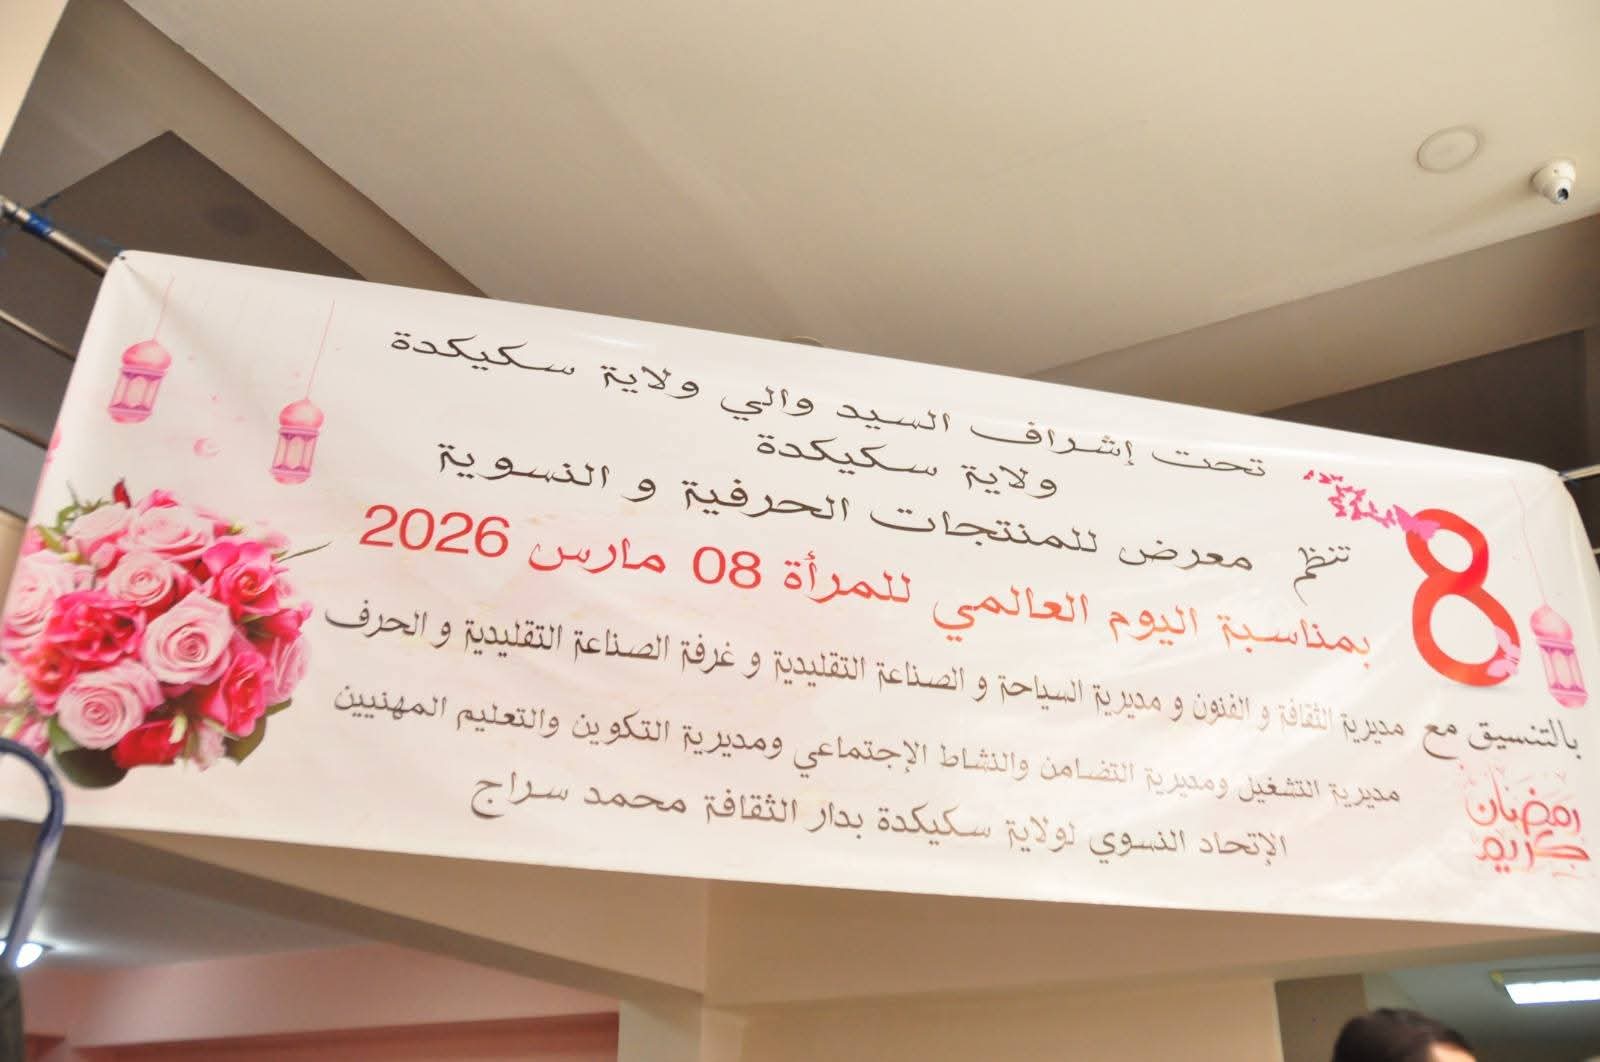 تحت إشراف السيد والي ولاية سكيكدة
ولاية سكيكدة
تنظم معرض للمنتجات الحرفية و النسوية
بمناسبة اليوم العالمي للمرأة 08 مارس 2026
8
بالتنسيق مع مديرية الثقافة و الفنون و مديرية السياحة و الصناعة التقليدية و غرفة الصناعة التقليدية و الحرف
مديرية التشغيل ومديرية التضامن والنشاط الإجتماعي ومديرية التكوين والتعليم المهنيين
الإتحاد النسوي لولاية سكيكدة بدار الثقافة محمد سراج
رمضان
كريم